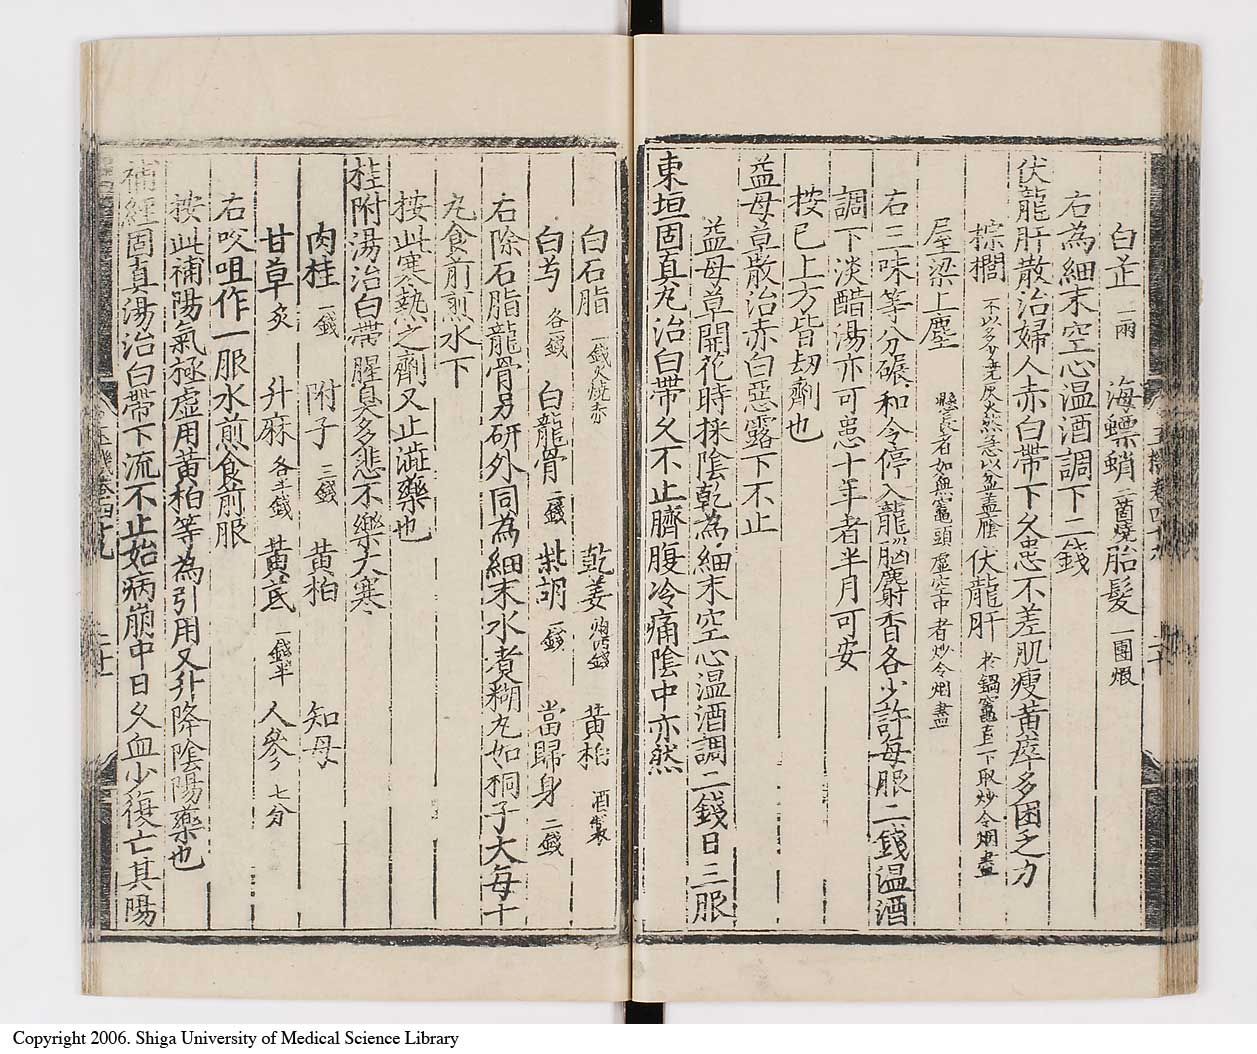 白芷一兩　海螵蛸二箇燒　胎髮一團煆
右為細末空心温酒調下二錢
伏龍肝散治婦人赤白帶下久患不差肌瘦黄瘁多困乏力
椶櫚不以多少燒灰火然急以盆盖䕃　伏龍肝於鍋竈直下取炒令烟盡
屋梁上塵懸長者如無竈頭虛空中者炒令烟盡
右三味等分碾和令停入龍腦麝香各少許每服二錢温酒
調下淡醋湯亦可患十年者半月可安
按已上方皆刼劑也
益母草散治赤白惡露下不止
益母草開花時採陰乾為細末空心温酒調二錢日三服
東垣固真丸治白帶久不止臍腹冷痛陰中亦然
白石脂一錢火燒赤　乾姜炮四錢　黄栢酒製
白芍各一錢　白龍骨二錢　柴胡一錢　當歸身二錢
右除石脂龍骨另研外同為細末水煑糊丸如桐子大每十
丸食前煎水下
按此寒熱之劑又止澁藥也
桂附湯治白帶腥臭多悲不樂大寒
肉桂一錢　附子三錢　黄栢　知母
甘草炙　升麻各半錢　黄芪一錢半　人參七分
右㕮咀作一服水煎食前服
按此補陽氣極虛用黄栢等為引用又升降陰陽藥也
補經固真湯治白帶下流不止始病崩中日久血少復亡其陽
Copyright 2006. Shiga University of Medical Science Library